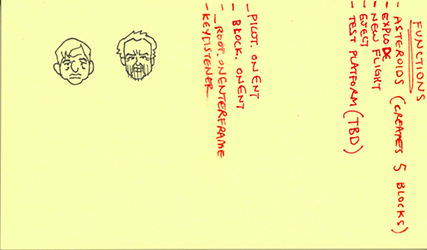 FUNCTIONS
- ASTEROIDS (CREATES 5 BLOCKS)
- EXPLODE
- NEW FLIGHT
- EJECT
- TEST PLATFORM (TBD)
- PILOT. ON ENT
- BLOCK. ONENT
- _ROOT. ONENTERFRAME
- KEYLISTENER